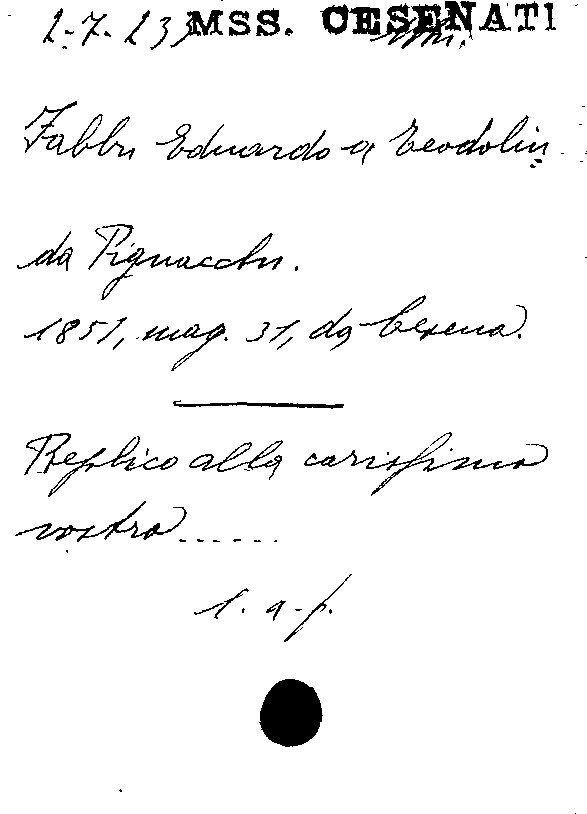 2-7-23 MSS. CESENATI
Fabbri Eduardo a Teodolin
da Pignacchi.
1851, mag. 31, da Cesena.
Replico alla carissima
vostra......
l. a-f.